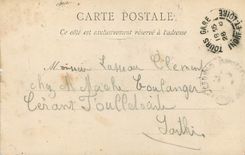 CARTE POSTALE
Ce côté est exclusivement réservé à l'adresse
TOURS GARE
INDRE-ET-LOIRE
Monsieur Lasseau Clément
chez M. Boulanger
Cérant Foulletourte
Sarthe